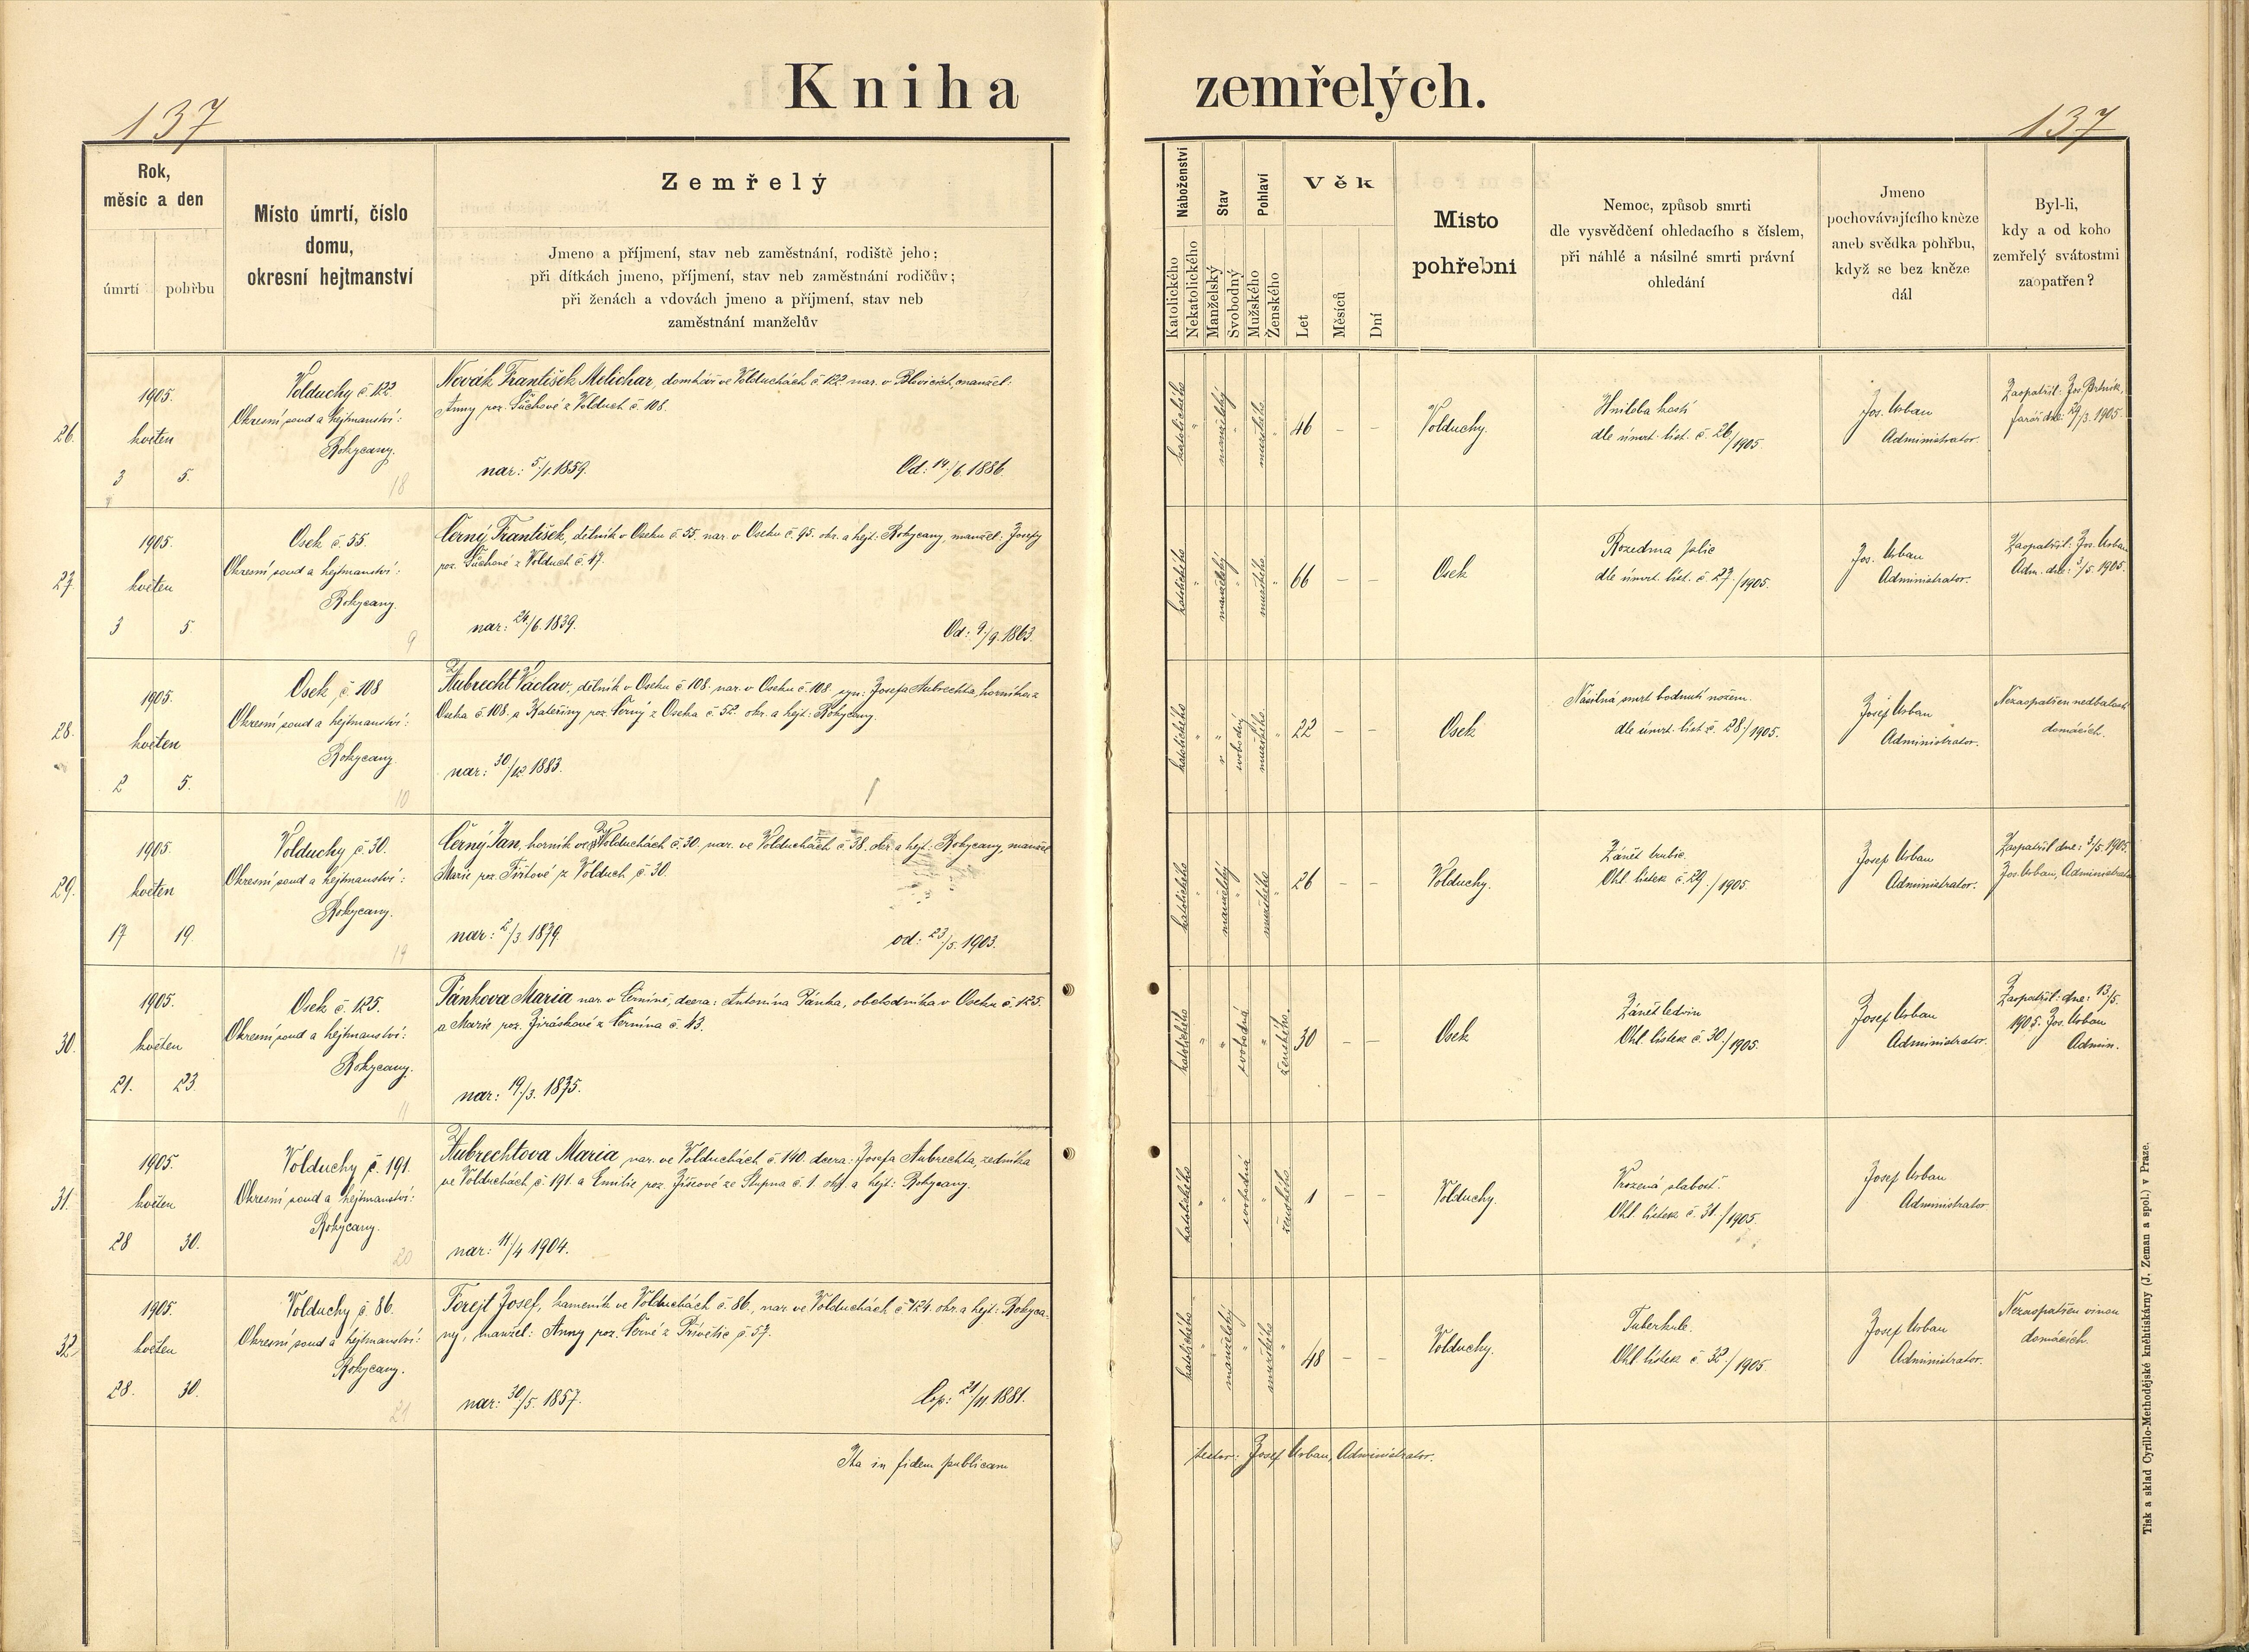 Kniha zemřelých.
137
137
Rok,
měsíc a den
úmrtí
pohřbu
Místo úmrtí, číslo
domu,
okresní hejtmanství
Zemřelý
Jmeno a příjmení, stav neb zaměstnání, rodiště jeho;
při dítkách jmeno, příjmení, stav neb zaměstnání rodičův;
při ženách a vdovách jmeno a příjmení, stav neb
zaměstnání manželův
Náboženství
Katolického
Nekatolického
Stav
Manželský
Svobodný
Pohlaví
Mužského
Ženského
Věk
Let
Měsíců
Dní
Místo
pohřební
Nemoc, způsob smrti
dle vysvědčení ohledacího s číslem,
při náhlé a násilné smrti právní
ohledání
Jmeno
pochovávajícího kněze
aneb svědka pohřbu,
když se bez kněze
dál
Byl-li,
kdy a od koho
zemřelý svátostmi
zaopatřen?
26.
1905.
květen
3 5.
Volduchy č 122.
Okresní soud a hejtmanství:
Rokycany.
18
Novák František Melichar, domkář ve Volduchách č 122. nar. v Blovicích, manžel:
Anny roz. Sůchové z Volduch č. 108.
nar: 5./1. 1859. Od: 14./6. 1886.
katolického
manželský
mužského
46 – –
Volduchy.
Hniloba kostí
dle úmrt. list. č. 26/1905.
Jos. Urban
Administrator.
Zaopatřil: Jos. Brtník,
farář dne: 29/3. 1905.
27.
1905.
květen
3 5.
Osek č 55.
Okresní soud a hejtmanství:
Rokycany.
9
Černý František, dělník v Oseku č. 55. nar. v Oseku č. 95. okr. a hejt: Rokycany, manžel: Josefy
roz. Sůchové z Volduch č. 47.
nar: 24/6. 1839. Od: 9./9. 1863.
katolického
manželský
mužského
66 – –
Osek
Rozedma plic
dle úmrt. list. č 27./1905.
Jos. Urban
Administrator.
Zaopatřil: Jos. Urban
Adm. dne: 3/5. 1905.
28.
1905.
květen
2 5.
Osek, č. 108
Okresní soud a hejtmanství:
Rokycany
10
Aubrecht Václav, dělník v Oseku č 108. nar. v Oseku č. 108. syn: Josefa Aubrechta, horníka z
Oseka č. 108. a Kateřiny roz. Černý z Oseka č. 52. okr. a hejt: Rokycany.
nar: 30/12 1883.
katolického
svobodný
mužského
22 – –
Osek
Násilná smrt bodnutí nožem.
dle úmrt. list č. 28./1905.
Josef Urban
Administrator.
Nezaopatřen nedbalostí
domácích.
29.
1905.
květen
17 19.
Volduchy č. 30.
Okresní soud a hejtmanství:
Rokycany.
19
Černý Jan, horník ve Volduchách č. 30. nar. ve Volduchách č. 38. okr. a hejt: Rokycany, manžel
Marie roz. Tištové z Volduch č. 30.
nar: 2/3. 1879. od: 23/5. 1903.
katolického
manželský
mužského
26 – –
Volduchy.
Zánět trubic.
Ohl. lístek č. 29./1905.
Josef Urban
Administrator.
Zaopatřil dne: 3/5. 1905.
Jos. Urban, Administrator
30.
1905.
květen
21. 23.
Osek č. 125.
Okresní soud a hejtmanství:
Rokycany.
11
Pánkova Maria nar. v Černíně, dcera: Antonína Pánka, obchodníka v Oseku č. 125.
a Marie roz. Jiráskové z Černína č. 43.
nar: 19./3. 1875.
katolického
svobodná
ženského.
30 – –
Osek
Zánět ledvin
Ohl. lístek č. 30./1905.
Josef Urban
Administrator.
Zaopatřil: dne: 13/5.
1905. Jos. Urban
Admin.
31.
1905.
květen
28 30.
Volduchy č. 191.
Okresní soud a hejtmanství:
Rokycany.
20
Aubrechtova Maria nar. ve Volduchách č. 140. dcera: Josefa Aubrechta, zedníka
ve Volduchách č. 191. a Emilie roz. ze Stupna č. 1. okr. a hejt: Rokycany.
nar: 11/4 1904.
katolického
svobodná
ženského.
1 – –
Volduchy.
Vrozená slabost.
Ohl. lístek č. 31./1905.
Josef Urban
Administrator
32.
1905.
květen
28. 30.
Volduchy č 86.
Okresní soud a hejtmanství:
Rokycany.
21
Forejt Josef, kameník ve Volduchách č. 86., nar. ve Volduchách č 124. okr. a hejt: Rokyca-
ny, manžel: Anny roz. Černé z Přívětic č. 57.
nar: 30/5. 1857. Cop: 21/11. 1881.
katolického
manželský
mužského
48 – –
Volduchy.
Tuberkule.
Ohl. lístek č. 32./1905.
Josef Urban
Administrator.
Nezaopatřen vinou
domácích.
Ita in fidem publicam
testor: Josef Urban, Administrator.
Tisk a sklad Cyrillo-Methodějské knéhtiskárny (J. Zeman a spol.) v Praze.